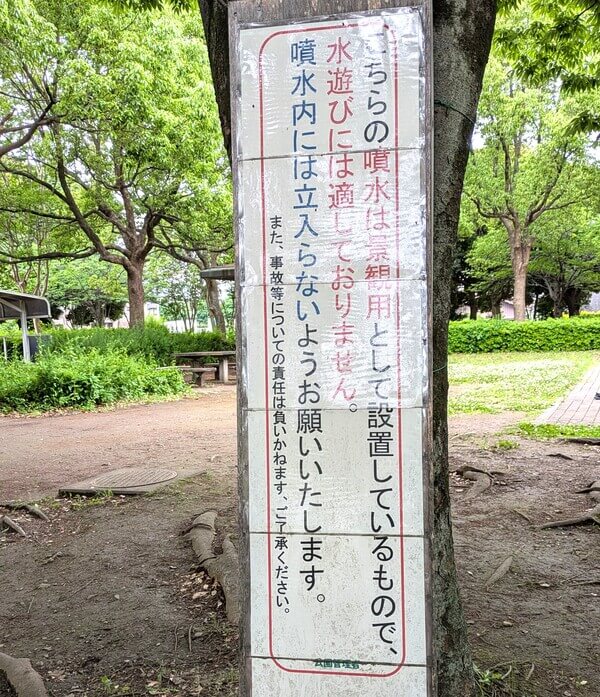 こちらの噴水は景観用として設置しているもので、
水遊びには適しておりません。
噴水内には立入らないようお願いいたします。
また、事故等についての責任は負いかねます、ご了承ください。
公園管理者